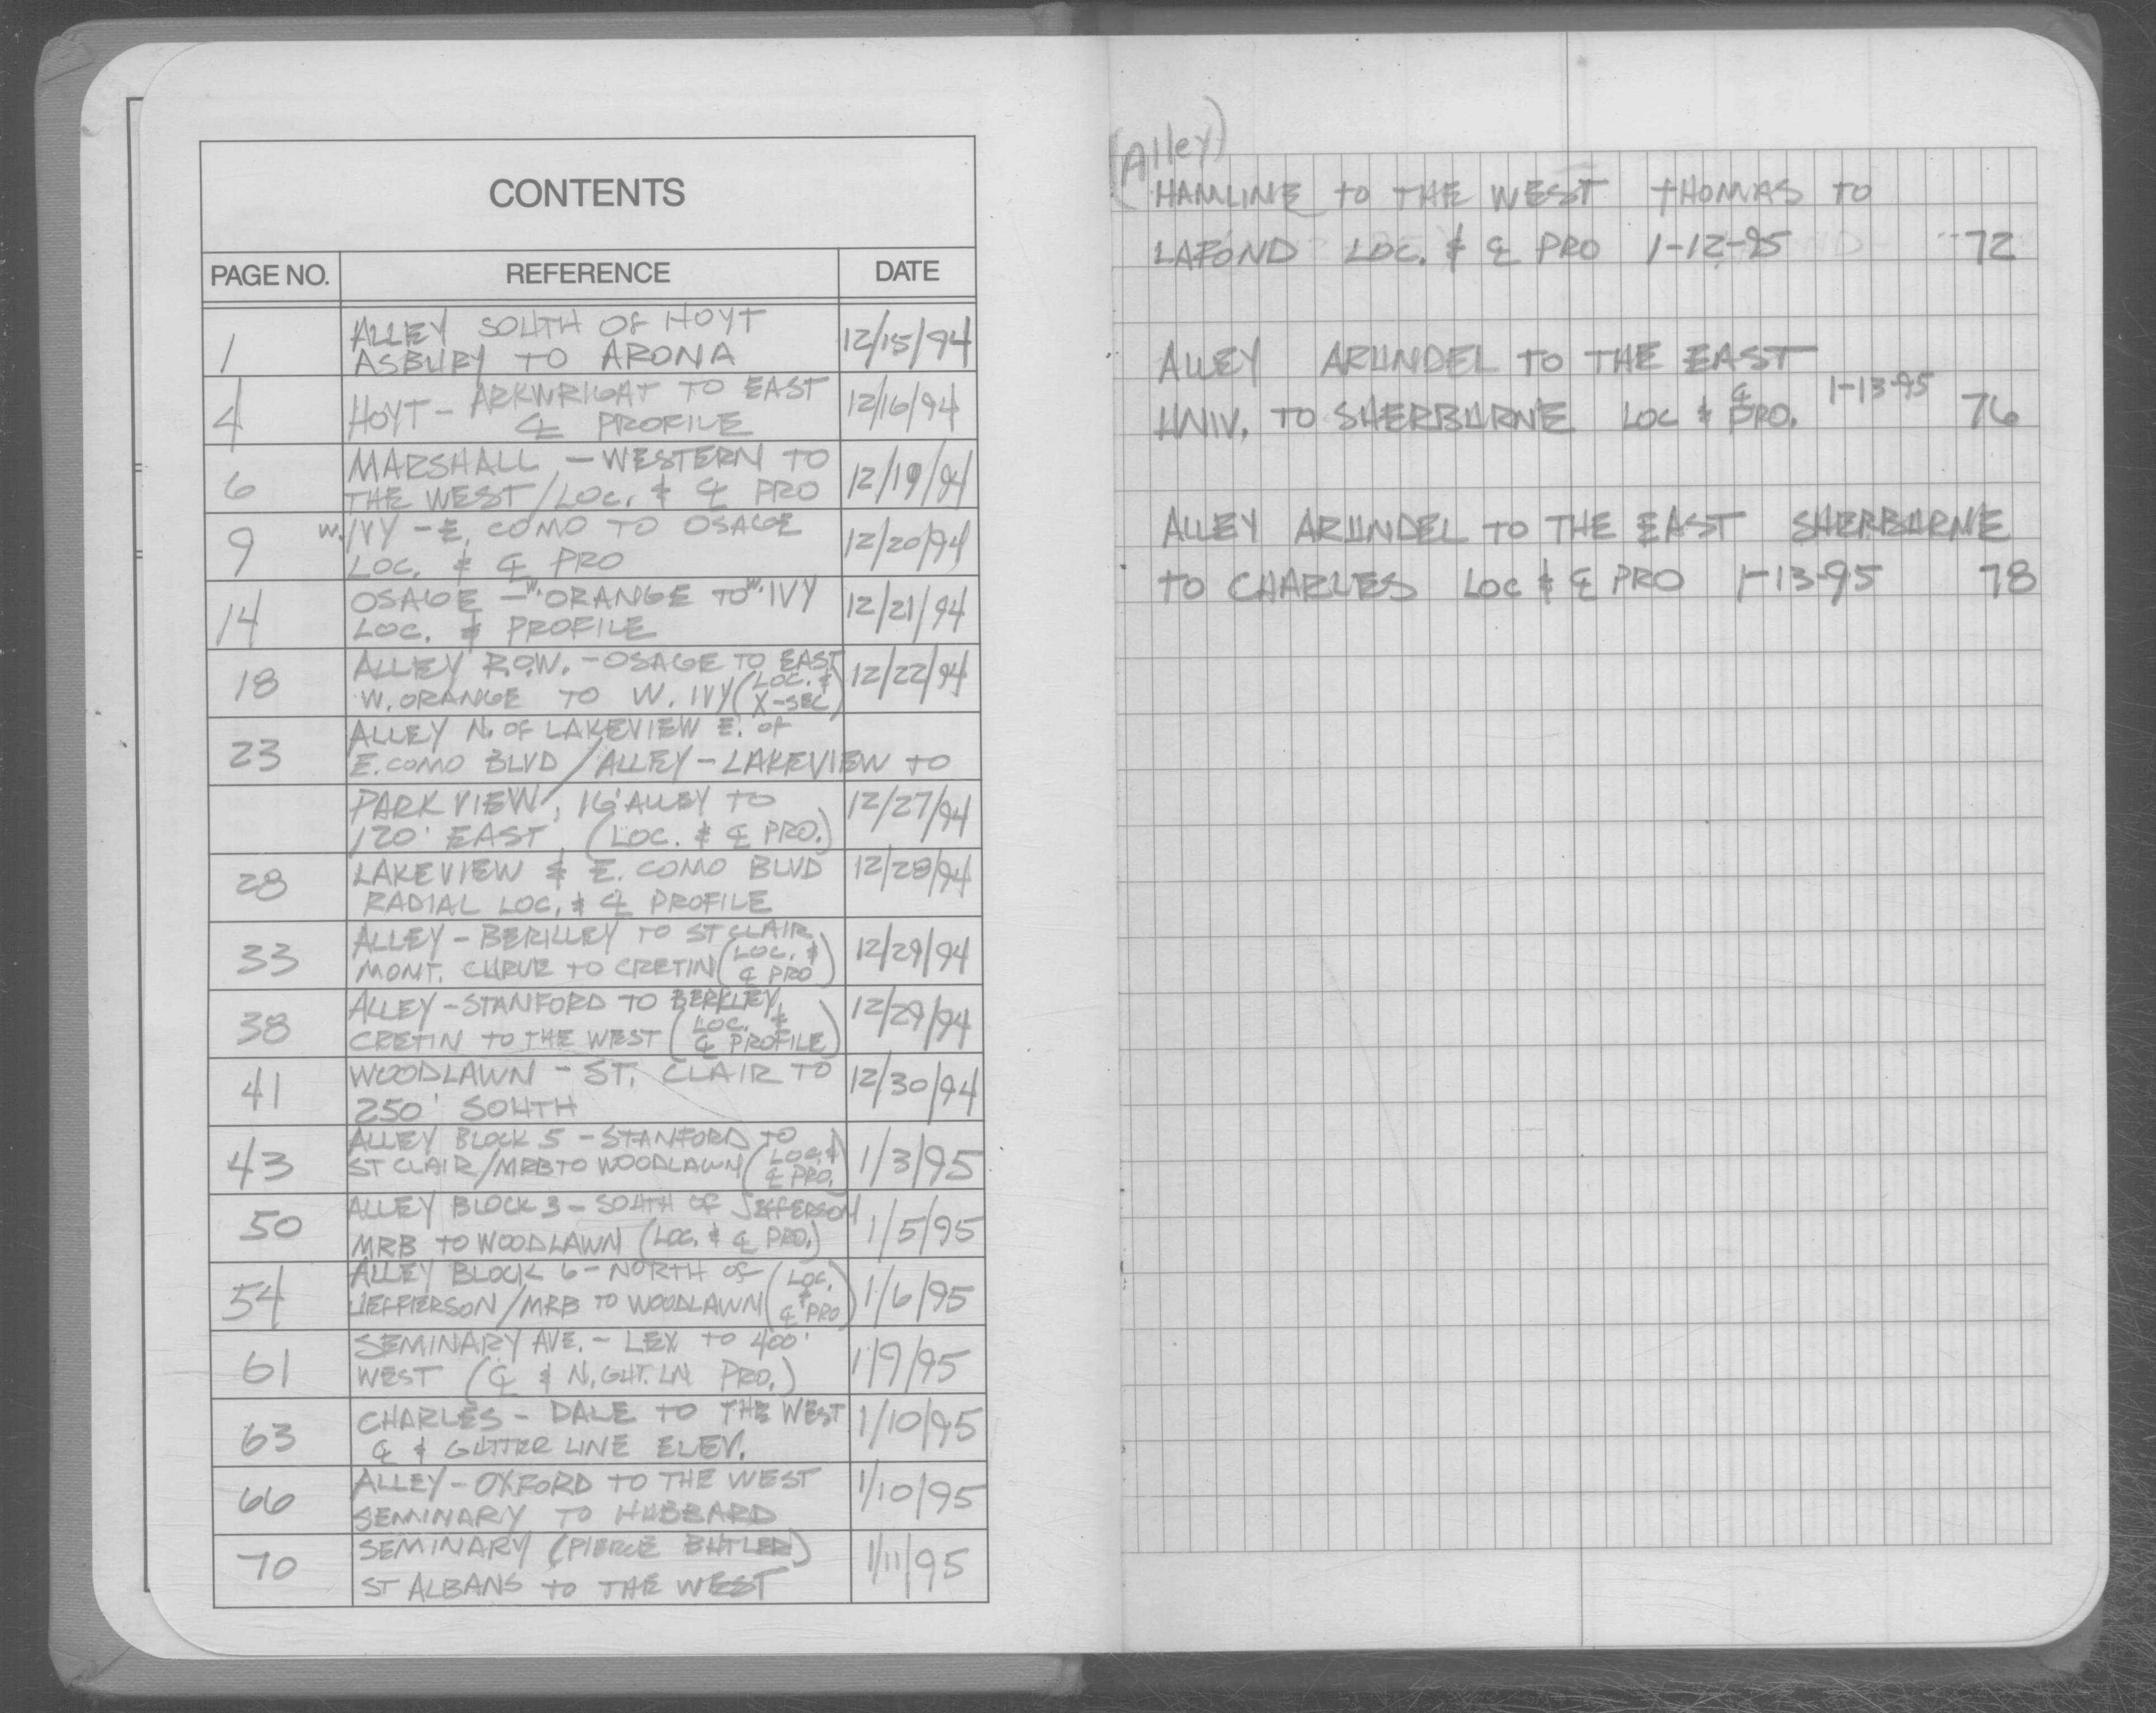 CONTENTS
PAGE NO. REFERENCE DATE
1 ALLEY SOUTH OF HOYT
ASBURY TO ARONA 12/15/94
4 HOYT - ARKWRIGHT TO EAST
℄ PROFILE 12/16/94
6 MARSHALL - WESTERN TO
THE WEST/LOC. & ℄ PRO 12/19/94
9 W. IVY - E. COMO TO OSAGE
LOC. & ℄ PRO 12/20/94
14 OSAGE - W. ORANGE TO W. IVY
LOC. & PROFILE 12/21/94
18 ALLEY R.O.W. - OSAGE TO EAST
W. ORANGE TO W. IVY (LOC. & X-SEC) 12/22/94
23 ALLEY N. OF LAKEVIEW E. of
E. COMO BLVD / ALLEY - LAKEVIEW TO
PARKVIEW, 16' ALLEY TO
120' EAST (LOC. & ℄ PRO.) 12/27/94
28 LAKEVIEW & E. COMO BLVD
RADIAL LOC. & ℄ PROFILE 12/28/94
33 ALLEY - BERKLEY TO ST CLAIR
MONT. CURVE TO CRETIN (LOC. & ℄ PRO) 12/29/94
38 ALLEY - STANFORD TO BERKLEY,
CRETIN TO THE WEST (LOC. & ℄ PROFILE) 12/29/94
41 WOODLAWN - ST. CLAIR TO
250' SOUTH 12/30/94
43 ALLEY BLOCK 5 - STANFORD TO
ST CLAIR/MRB TO WOODLAWN (LOC. & ℄ PRO.) 1/3/95
50 ALLEY BLOCK 3 - SOUTH OF JEFFERSON
MRB TO WOODLAWN (LOC. & ℄ PRO.) 1/5/95
54 ALLEY BLOCK 6 - NORTH OF
JEFFERSON/MRB TO WOODLAWN (LOC. & ℄ PRO) 1/6/95
61 SEMINARY AVE. - LEX TO 400'
WEST (℄ & N. GUT. LN PRO.) 1/9/95
63 CHARLES - DALE TO THE WEST
℄ & GUTTER LINE ELEV. 1/10/95
66 ALLEY - OXFORD TO THE WEST
SEMINARY TO HUBBARD 1/10/95
70 SEMINARY (PIERCE BUTLER)
ST ALBANS TO THE WEST 1/11/95
(Alley)
HAMLINE TO THE WEST THOMAS TO
LAFOND LOC. & ℄ PRO 1-12-95 72
ALLEY ARUNDEL TO THE EAST
UNIV. TO SHERBURNE LOC & ℄ PRO. 1-13-95 76
ALLEY ARUNDEL TO THE EAST SHERBURNE
TO CHARLES LOC & ℄ PRO 1-13-95 78